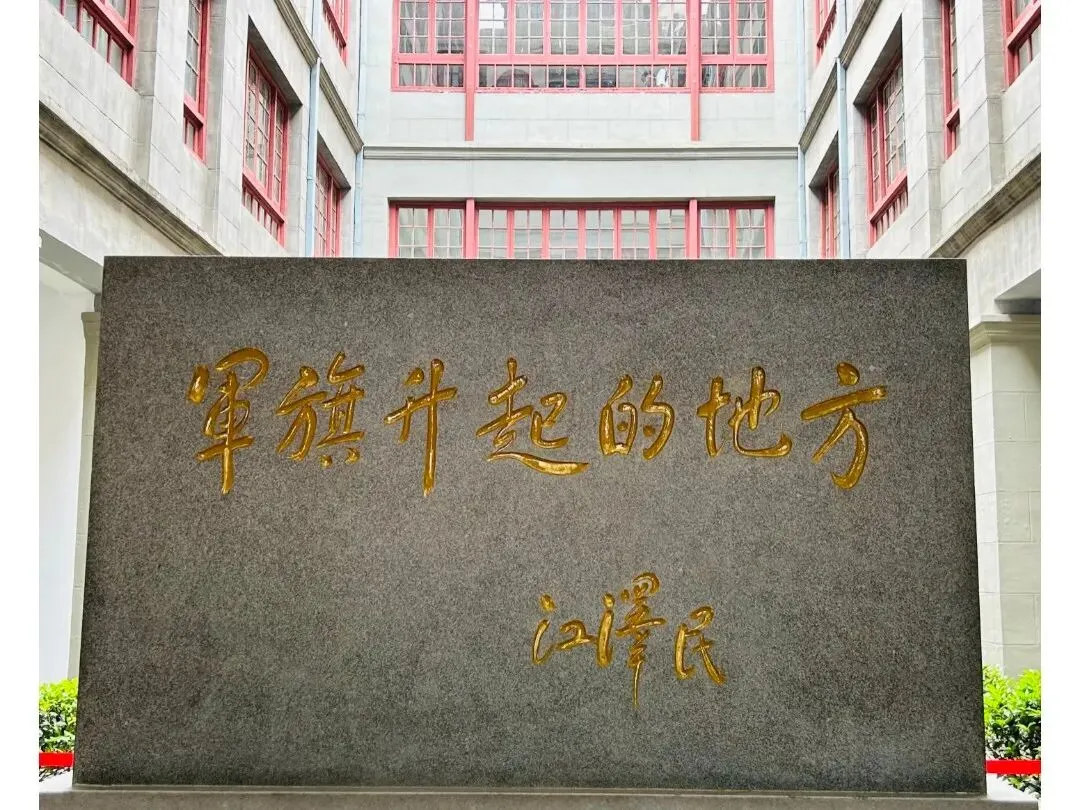 軍旗升起的地方
江澤民